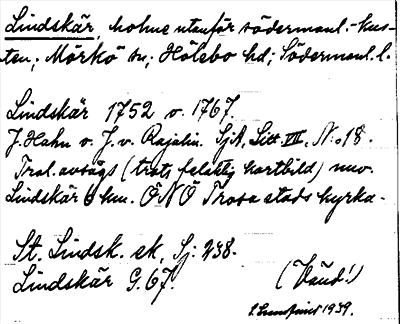 Lindskär, holme utanför södermanl.-kus-
ten; Mörkö sn; Hölebo hd; Södermanl. l.
Lindskär 1752 o. 1767.
J. Hahn o. J. v. Rajalin. SjA, Litt. VIII, N:o 18.
Trol. avsägs (trots felaktig kartbild) nuv.
Lindskär 6 km. ÖNÖ Trosa stads kyrka.
St. Lindsk. ek, Sj: 238.
Lindskär G. 67.
1939.